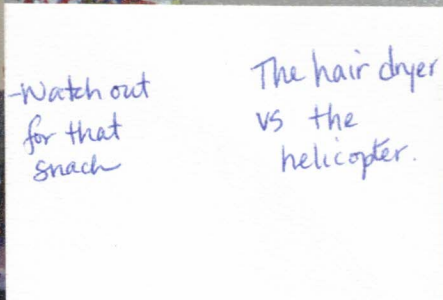 -Watch out
for that
snach
The hair dryer
vs the
helicopter.